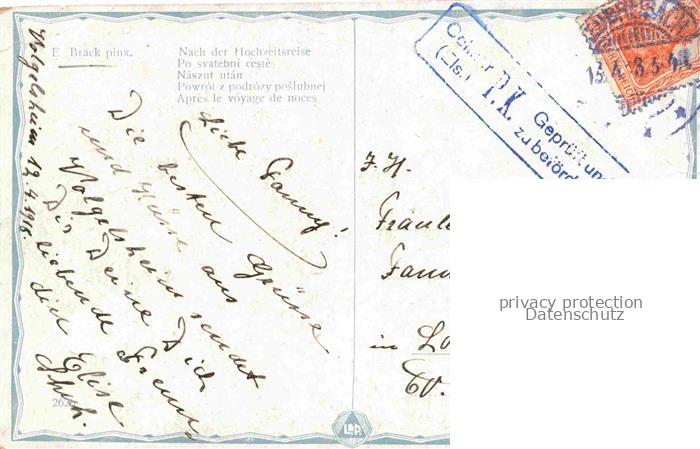 E. Brack pinx.
Nach der Hochzeitsreise
Po svatební cestě
Nászut után
Powrót z podróży poślubnej
Après le voyage de noces
Volgelsheim 12.4.1916.
Liebe Fanny!
Die besten Grüsse
und Küsse aus
Volgelsheim sendet
Dir Deine Dich
liebende Freun
din Elise
Colmar
(Els.)
P.K.
Geprüft un
zu beförd
F. H.
Fräule
Fann
in
262
L&P.
privacy protection
Datenschutz